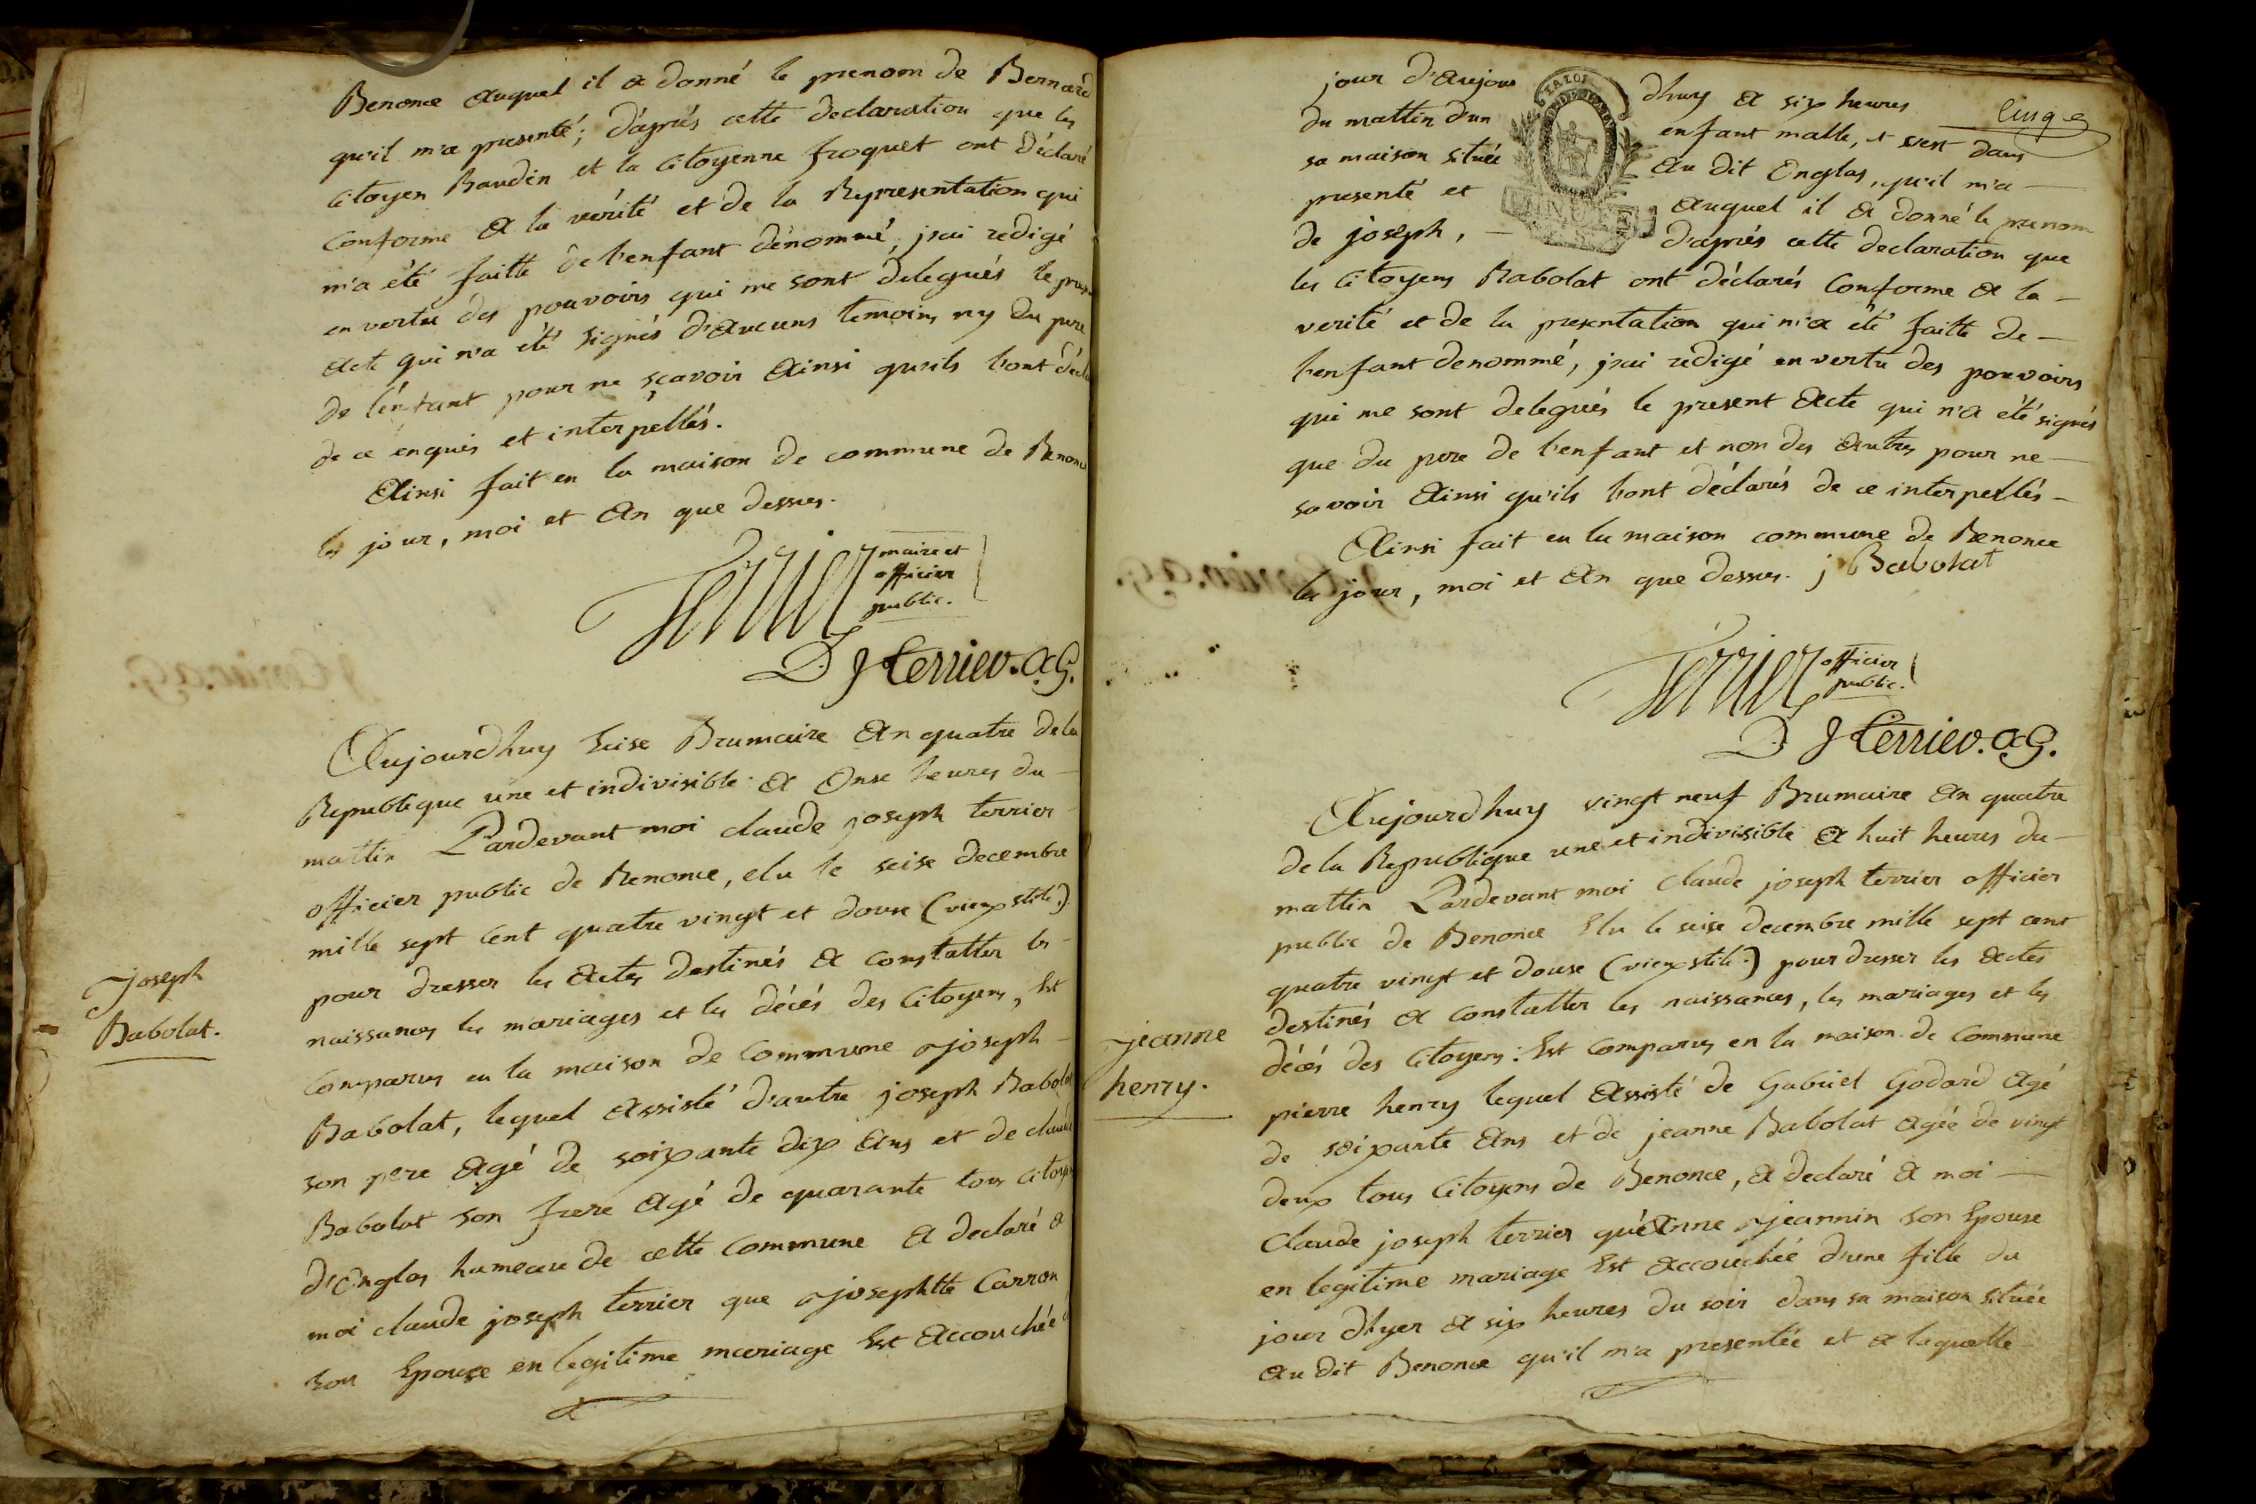 Benonce auquel il a donné le prenom de Bernard
qu'il m'a presenté; d'après cette declaration que les
Citoyen Baudin et la Citoyenne froquet ont déclaré
Conforme a la verité et de la Representation qui
m'a été faitte de l'enfant dénommé, j'ai redigé
en vertu des pouvoirs qui me sont delegués le
acte qui n'a été signés d'aucuns temoins ny du pere
de l'enfant pour ne sçavoir ainsi qu'ils l'ont
de ce enquis et interpellés.
Ainsi fait en la maison de commune de Benonce
les jour, moi et an que dessus.
Terrier maire et
officier
public.
D J terrier. a G.
Aujourdhuy seise Brumaire an quatre de la
Republique une et indivisible a Onse heures du
mattin Pardevant moi claude joseph terrier
officier public de Benonce, elu le seise decembre
mille sept cent quatre vingt et douse (vieux stile.)
pour dresser les actes destinés a constatter les
naissances les mariages et les décés des Citoyens, Est
Comparus en la maison de Commune joseph
Joseph
Babolat.
Babolat, lequel assisté d'autre joseph Babolat
son pere agé de soixante dix ans et de claude
Babolat son frere agé de quarante tous Citoyens
d'Onglas hameau de cette Commune a declaré a
moi claude joseph terrier que josephtte Carron
son Epouse en legitime mariage Est accouchée
jour d'aujour dhuy a six heures
Cinq
du mattin d'un enfant malle, et s'est dans
sa maison située au dit Onglas, qu'il m'a
presenté et auquel il a donné le prenom
de joseph, d'après cette declaration que
les Citoyens Babolat ont déclarés Conforme a la
verité et de la presentation qui m'a été faitte de
l'enfant denommé, j'ai redigé en vertu des pouvoirs
qui me sont delegués le present acte qui n'a été signés
que du pere de l'enfant et non des autres pour ne
savoir ainsi qu'ils l'ont déclarés de ce interpellés
Ainsi fait en la maison commune de Benonce
les jour, moi et an que dessus. j Babolat
Terrier officier
public.
D J terrier. a G.
Aujourdhuy vingt neuf Brumaire an quatre
de la Republique une et indivisible a huit heures du
mattin Pardevant moi Claude joseph terrier officier
public de Benonce Elu le seise decembre mille sept cent
quatre vingt et douse (vieux stile.) pour dresser les actes
destinés a constatter les naissances, les mariages et les
décés des Citoyens: Est Comparus en la maison de Commune
jeanne
henry.
pierre henry lequel assisté de Gabriel Godard agé
de soixante ans et de jeanne Babolat agée de vingt
deux tous Citoyens de Benonce, a declaré a moi
Claude joseph terrier qu'éanne jeannin son Epouse
en legitime mariage Est accouchée d'une fille du
jour d'hyer a six heures du soir dans sa maison située
au dit Benonce qu'il m'a presentée et a laquelle